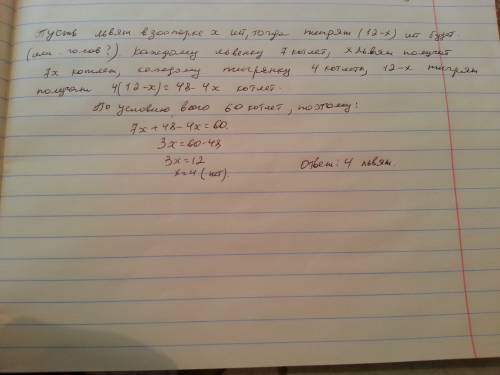 Пусть львят в зоопарке x шт, тогда тигрят (12-x) шт будет
(или голов?) Каждому львенку 7 котлет, x львят получат
7x котлет, каждому тигренку 4 котлеты, 12-x тигрят
получат 4(12-x)=48-4x котлет.
По условию всего 60 котлет, поэтому:
7x+48-4x=60.
3x=60-48
3x=12
x=4 (шт).
Ответ: 4 львят.